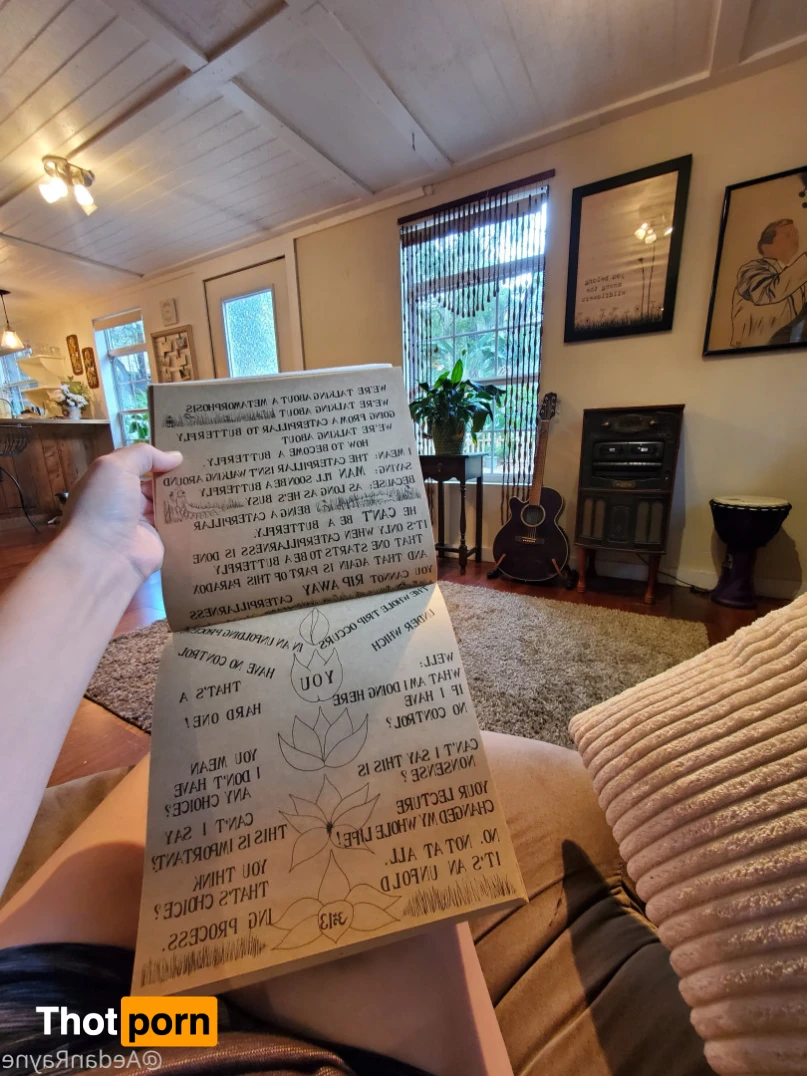 you belong
among the
wildflowers
WE'RE TALKING ABOUT A METAMORPHOSIS
WE'RE TALKING ABOUT
GOING FROM A CATERPILLAR TO BUTTERFLY
WE'RE TALKING ABOUT
HOW TO BECOME A BUTTERFLY.
I MEAN: THE CATERPILLAR ISN'T WALKING AROUND
SAYING: MAN I'LL SOON BE A BUTTERFLY
BECAUSE: AS LONG AS HE'S BUSY
BEING A CATERPILLAR
HE CAN'T BE A BUTTERFLY.
IT'S ONLY WHEN CATERPILLARNESS IS DONE
THAT ONE STARTS TO BE A BUTTERFLY
AND THAT AGAIN IS PART OF THIS PARADOX
YOU CANNOT RIP AWAY CATERPILLARNESS
THE WHOLE TRIP OCCURS IN AN UNFOLDING PROCESS
UNDER WHICH YOU HAVE NO CONTROL
WELL:
WHAT AM I DOING HERE
IF I HAVE
NO CONTROL?
THAT'S A
HARD ONE!
CAN'T I SAY THIS IS
NONSENSE?
YOU MEAN
I DON'T HAVE
ANY CHOICE?
YOUR LECTURE
CHANGED MY WHOLE LIFE!
CAN'T I SAY
THIS IS IMPORTANT?
NO. NOT AT ALL.
IT'S AN UNFOLD
YOU THINK
THAT'S CHOICE?
ING PROCESS.
Thotporn
@AedanRayne